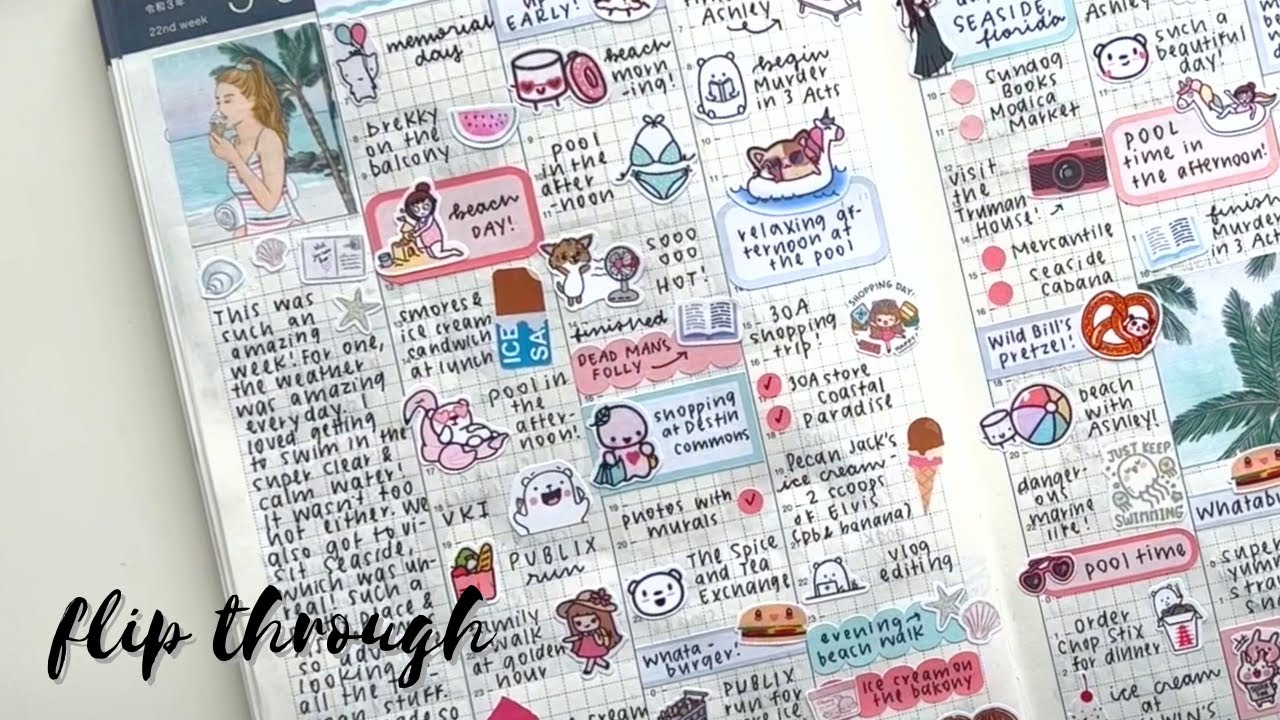 令和3年
22nd week
This was
such an
amazing
week! For one,
the weather
was amazing
every day. I
loved getting
to swim in the
super clear &
calm water!
It wasn't too
hot either. We
also got to vi-
sit Seaside,
which was un-
real! such a
& 
so
looking
all the stuff.
memorial
day
brekky
on the
balcony
beach
DAY!
smores &
ice cream
sandwich
at lunch
ICE
SA
pool in
the
after-
noon!
VKI
PUBLIX
run
family
walk
at golden
hour
EARLY!
beach
morn
-ing!
pool
in the
after
-noon
sooo
ooo
ooo
HOT!
finished
DEAD MAN'S
FOLLY
shopping
at Destin
commons
photos with
murals
The Spice
and Tea
Exchange
whata-
burger!
PUBLIX
run for
ice
Ashley!
begin
Murder
in 3 Acts
relaxing af-
ternoon at
the pool
SHOPPING DAY!
30A
shopping
trip!
30A store
Coastal
paradise
Pecan Jack's
ice cream -
2 scoops
of Elvis
(pb & banana)
vlog
editing
evening
beach walk
Ice cream on
the balcony
SEASIDE,
florida
Sundog
Books
Modica
Market
visit
the
Truman
House!
Mercantile
Seaside
cabana
Wild Bill's
pretzel!
beach
with
Ashley!
danger-
ous
marine
life!
JUST KEEP
SWIMMING
pool time
order
Chop Stix
for dinner
ice cream
at
Ashley
such a
beautiful
day!
POOL
time in
the afternoon!
finish
Murder
in 3 Acts
whatab
super
yummy
flip through